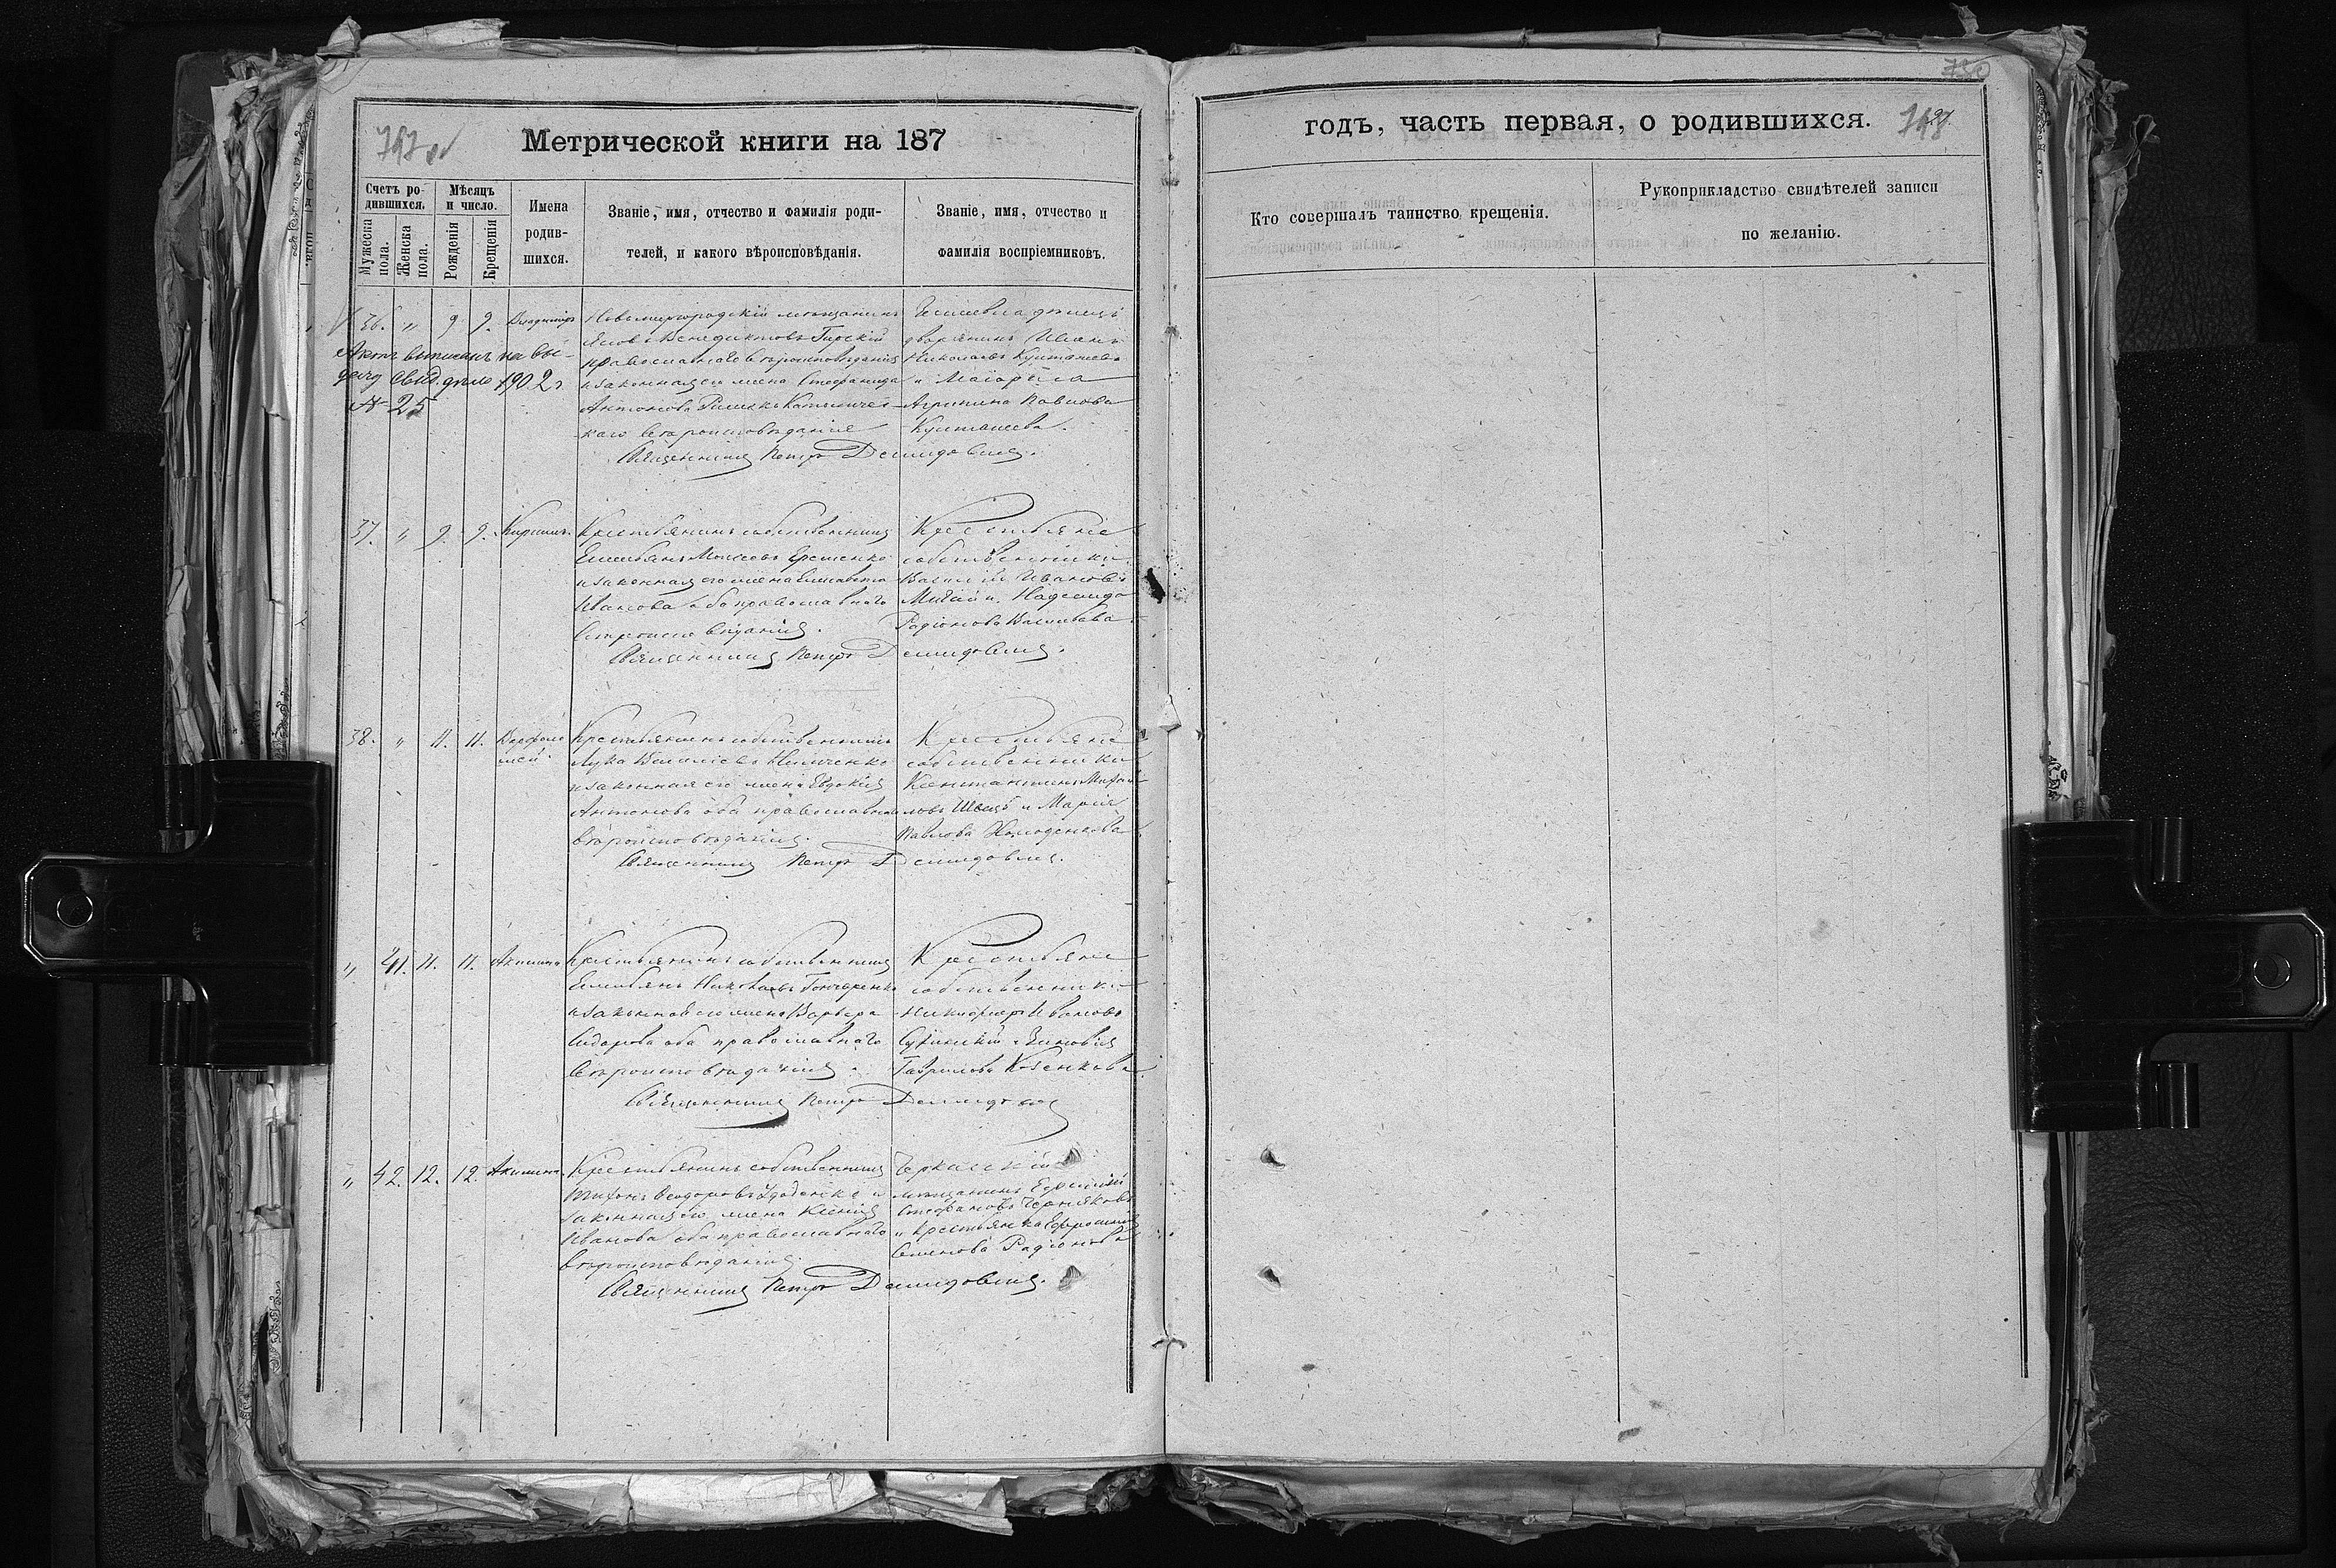 747 об
Метрической книги на 187
Счетъ ро-
дившихся.
Мѣсяцъ
и число.
Мужеска
пола.
Женска
пола.
Рожденія
Крещенія
Имена
родив-
шихся.
Званіе, имя, отчество и фамилія роди-
телей, и какого вѣроисповѣданія.
Званіе, имя, отчество и
фамилія воспріемниковъ.
36. " 9. 9. Владиміръ
Новомиргородскій мѣщанинъ
Яковъ Венедиктовъ Гирскій
православнаго вѣроисповѣданія
и законная его жена Стефанида
Антонова Римско Католичес-
каго вѣроисповѣданія
дворянинъ Иванъ
Николаевъ
и Маіорша
Агрипина Павлова
Священникъ Петръ Демидовичъ.
Актъ выписанъ на вы-
дачу свид. дѣло 1902 г
№ 25
37. " 9. 9. Кириллъ.
Крестьянинъ собственникъ
Емельянъ Моисеевъ Ерешенко
и законная его жена Елисавета
Иванова оба православнаго
вѣроисповѣданія.
Крестьяне
собственники
Василій Ивановъ
и Надежда
Радіонова Васильева
Священникъ Петръ Демидовичъ.
38. " 11. 11. Варфоло
мей.
Крестьянинъ собственникъ
Лука Василіевъ Ильченко
и законная его жена Евдокія
Антонова оба православнаго
вѣроисповѣданія.
Крестьяне
собственники
Константинъ Михай
ловъ Швецъ и Марія
Павлова
Священникъ Петръ Демидовичъ.
" 41. 11. 11. Акилина
Крестьянинъ собственникъ
Емельянъ Николаевъ Гончаренко
и законная его жена Варвара
Сидорова оба православнаго
вѣроисповѣданія.
Крестьяне
собственники
Никифоръ Ивановъ
и Зиновія
Гаврилова Козенкова
Священникъ Петръ Демидовичъ
" 42. 12. 12. Акилина.
Крестьянинъ собственникъ
Тихонъ Ѳеодоровъ и
законная его жена Ксенія
Иванова оба православнаго
вѣроисповѣданія
Черкасскій
мѣщанинъ Ефимій
Стефановъ Черняковъ
и крестьянка Ефросинія
Семенова Радіонова
Священникъ Петръ Демидовичъ.
750
годъ, часть первая, о родившихся.
748
Кто совершалъ таинство крещенія.
Рукоприкладство свидѣтелей записи
по желанію.